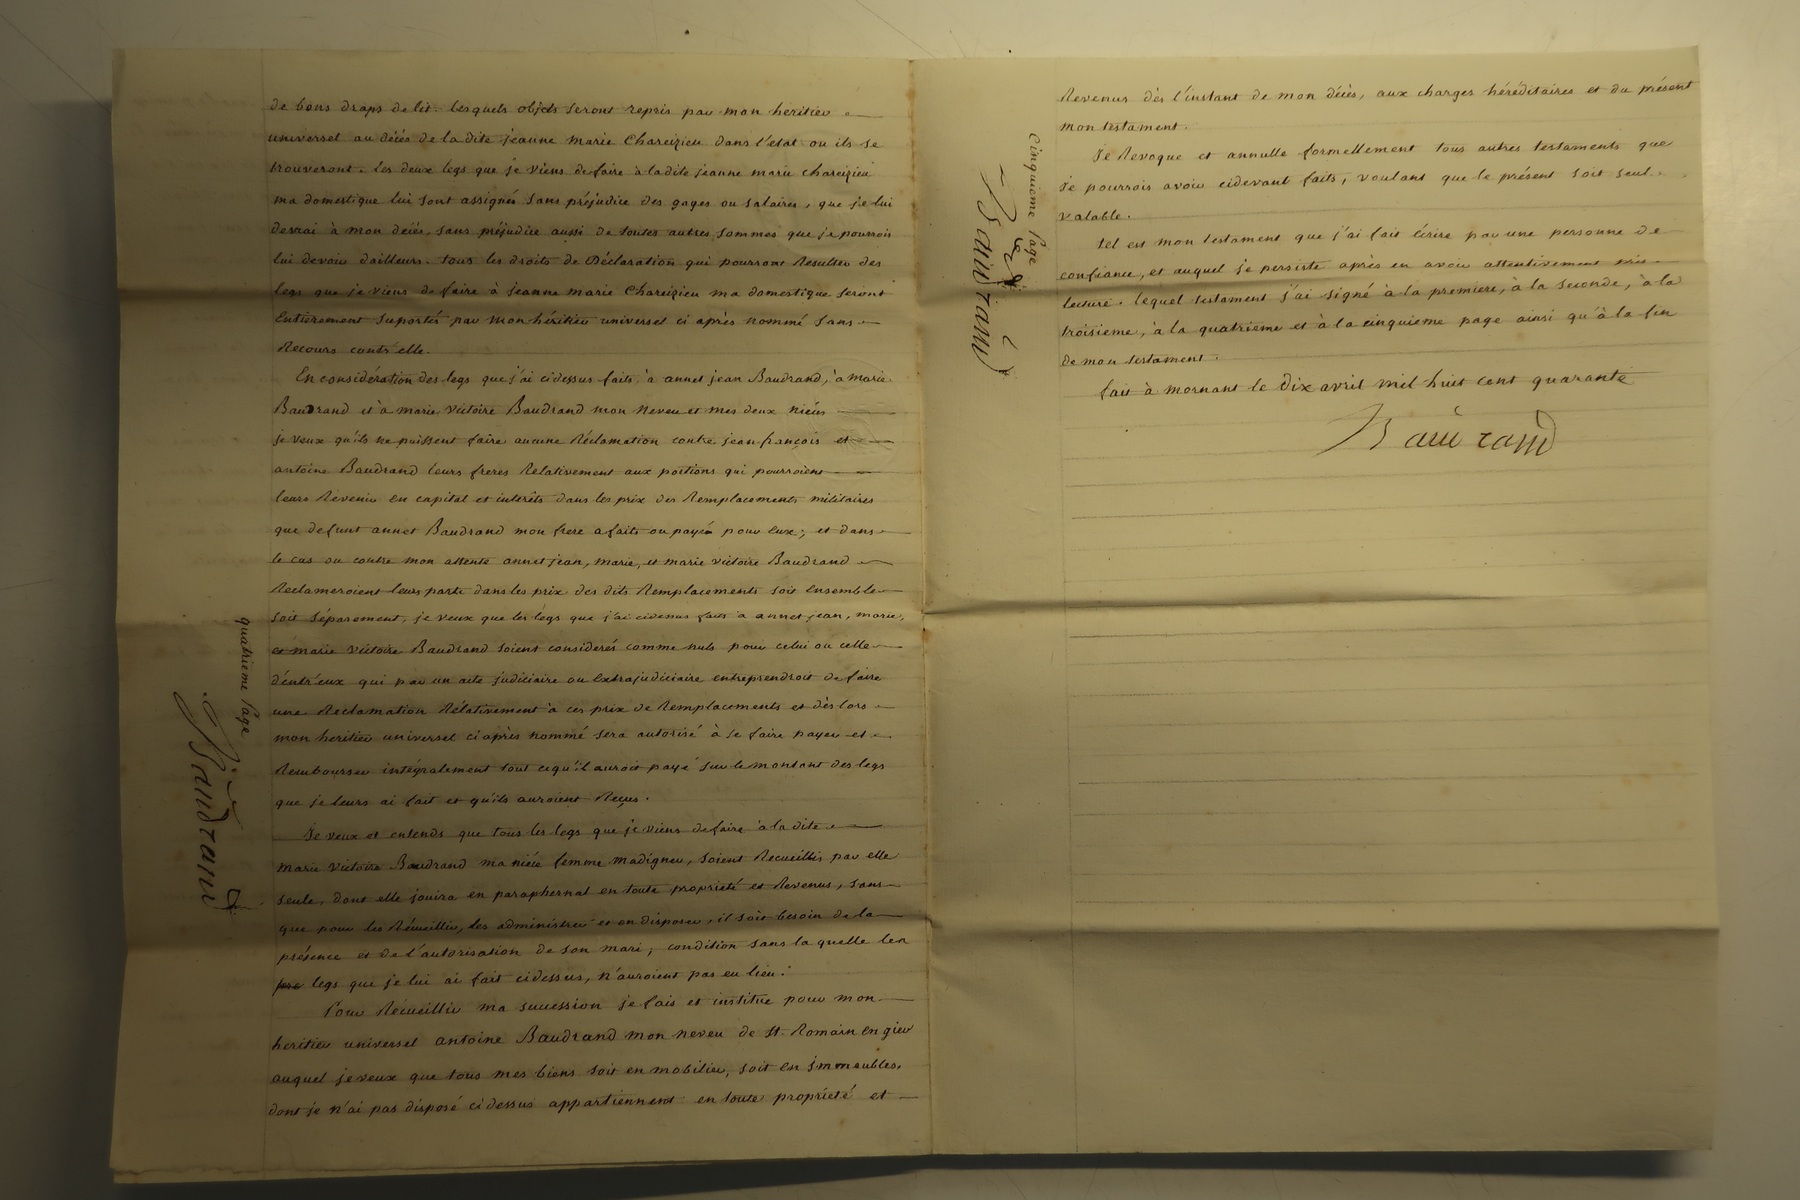 de bons draps de lit. lesquels objets seront repris par mon heritier
universel au décés de la dite jeanne marie Chareizieu dans l'etat ou ils se
trouveront. les deux legs que je viens de faire à la dite jeanne marie chareizieu
ma domestique lui sont assignés sans préjudice des gages ou salaires, que je lui
devrai à mon décés. sans préjudice aussi de toutes autres sommes que je pourrois
lui devoir d'ailleurs. tous les droits de Déclaration qui pourront Resulter des
legs que je viens de faire à jeanne marie Chareizieu ma domestique seront
Entièrement suportés par mon héritier universel ci après nommé sans
Recours contr'elle.
En considération des legs que j'ai cidessus faits, à annet jean Baudrand, à marie
Baudrand et à marie victoire Baudrand mon neveu et mes deux nièces
je veux qu'ils ne puissent faire aucune Réclamation contre jean françois et
antoine Baudrand leurs freres Relativement aux portions qui pourroient
leurs Revenir en capital et interêts dans les prix des Remplacements militaires
que defunt annet Baudrand mon frere a faits ou payés pour eux; et dans
le cas ou contre mon attente annet jean, marie, et marie victoire Baudrand
Reclameroient leurs parts dans les prix des dits Remplacements soit ensemble
soit séparement, je veux que les legs que j'ai cidessus faits a annet jean, marie,
et marie victoire Baudrand soient considerés comme nuls pour celui ou celle
d'entr'eux qui par un acte judiciaire ou extrajudiciaire entreprendroit de faire
une Reclamation Rélativement à ces prix de Remplacements et dès lors
mon heritier universel ci après nommé sera autorisé à se faire payer et
Rembourser intégralement tout ce qu'il auroit payé sur le montant des legs
que je leurs ai fait et qu'ils auroient Reçus.
Je veux et entends que tous les legs que je viens de faire à la dite
marie victoire Baudrand ma nièce femme madignier, soient Recueillis par elle
seule, dont elle jouira en paraphernal en toute propriété et Revenus, sans
que pour les Récueillir, les administrer et en disposer, il soit besoin de la
présence et de l'autorisation de son mari; condition sans la quelle les
legs que je lui ai fait cidessus, n'auroient pas eu lieu.
Pour Récueillir ma succession je fais et institue pour mon
heritier universel antoine Baudrand mon neveu de St. Romain en gier
auquel je veux que tous mes biens soit en mobilier, soit en immeubles,
dont je n'ai pas disposé cidessus appartiennent en toute propriété et
quatrieme page
Baudrand
Revenus dès l'instant de mon décès, aux charges héréditaires et du présent
mon testament.
Je Revoque et annulle formellement tous autres testaments que
je pourrois avoir cidevant faits, voulant que le présent soit seul
valable.
tel est mon testament que j'ai fait écrire par une personne de
confiance, et auquel je persiste après en avoir attentivement pris
lecture. lequel testament j'ai signé à la premiere, à la seconde, à la
troisieme, à la quatrieme et à la cinquieme page ainsi qu'à la fin
de mon testament.
fait à mornant le dix avril mil huit cent quarante
Baudrand
cinquieme page
Baudrand